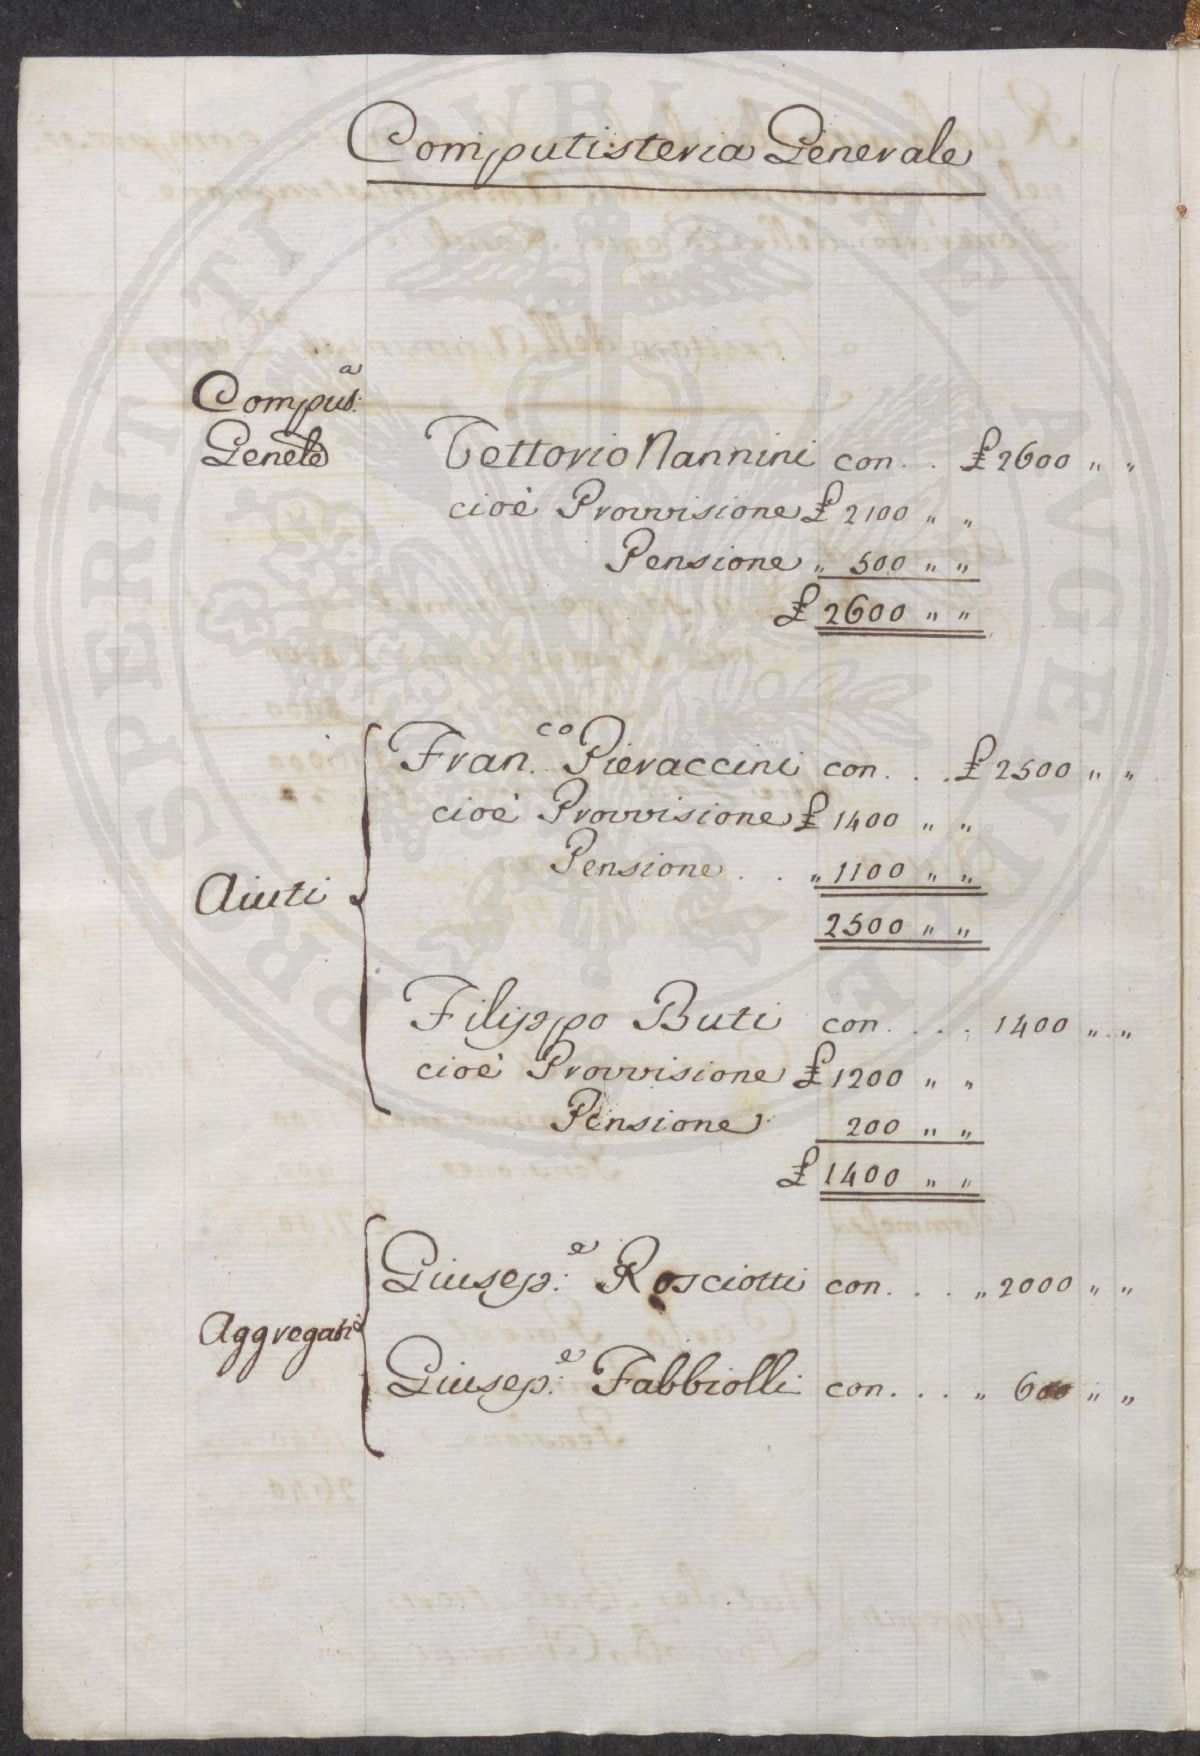 Computisteria Generale
Compus:ª
Genele
Tettorio Nannini con . . £ 2600 " "
cioè Provvisione £ 2100 " "
Pensione " 500 " "
£ 2600 " "
Aiuti
Fran.co Pieraccini con . . . £ 2500 " "
cioè Provvisione £ 1400 " "
Pensione . . " 1100 " "
2500 " "
Filippo Buti con . . . . 1400 " "
cioè Provvisione £ 1200 " "
Pensione 200 " "
£ 1400 " "
Aggregati
Giusep:e Rosciotti con . . . " 2000 " "
Giusep:e Fabbiolli con . . . " 600 " "
PROSPERITATI VELINVE AVGENDAE